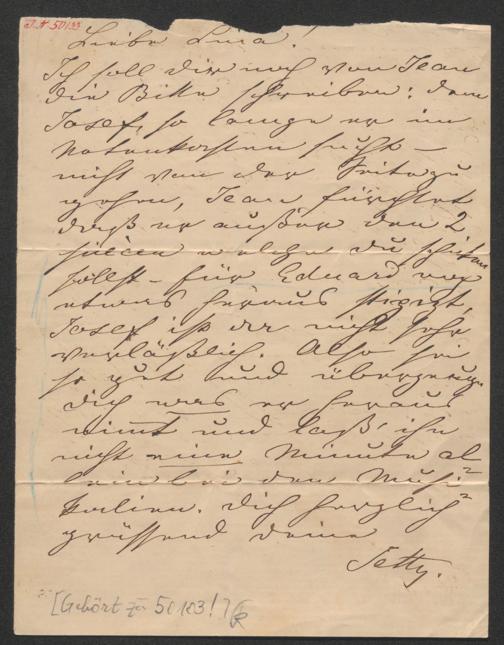 J.N. 50133
Liebe Lina!
Ich soll dir noch von Jean
die Bitte schreiben: dem
Josef, so lange er im
Notenkasten sucht –
nicht von der Seite zu
gehen, Jean fürchtet
daß er außer den 2
pieçen welche du schicken
sollst – für Eduard noch
etwas heraus stipizt,
Josef ist da nicht sehr
verläßlich. Also sei
so gut und überzeuge
dich was er heraus
nimt und laß' ihn
nicht eine Minute al
lein bei den Musi=
kalien. Dich herzlich
grüssend deine
Jetty.
[Gehört zu 50183!]